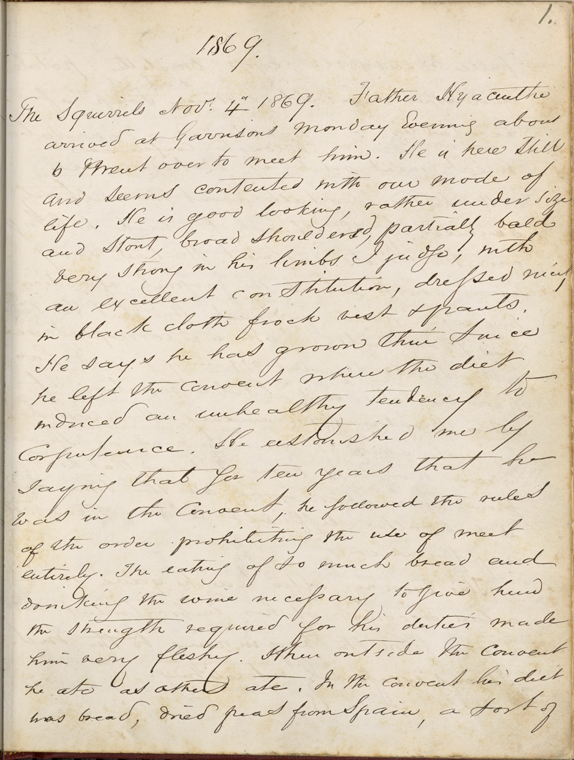 1.
1869.
The Squirrels Nov. 4" 1869. Father Hyacinthe
arrived at Garrisons Monday Evening about
6 I went over to meet him. He is here still
and seems contented with our mode of
life. He is good looking, rather under size
and stout, broad shouldered, partially bald
very strong in his limbs I judge, with
an excellent constitution, dressed nicely
in black cloth frock vest & pants.
He says he has grown thin since
he left the convent where the diet
induced an unhealthy tendency to
Corpulence. He astonished me by
saying that for ten years that he
was in the Convent, he followed the rules
of the order prohibiting the use of meet
entirely. The eating of so much bread and
drinking the wine necessary to give him
the strength required for his duties made
him very fleshy. When outside the Convent
he ate as others ate. In the convent his diet
was bread, dried peas from Spain, a sort of